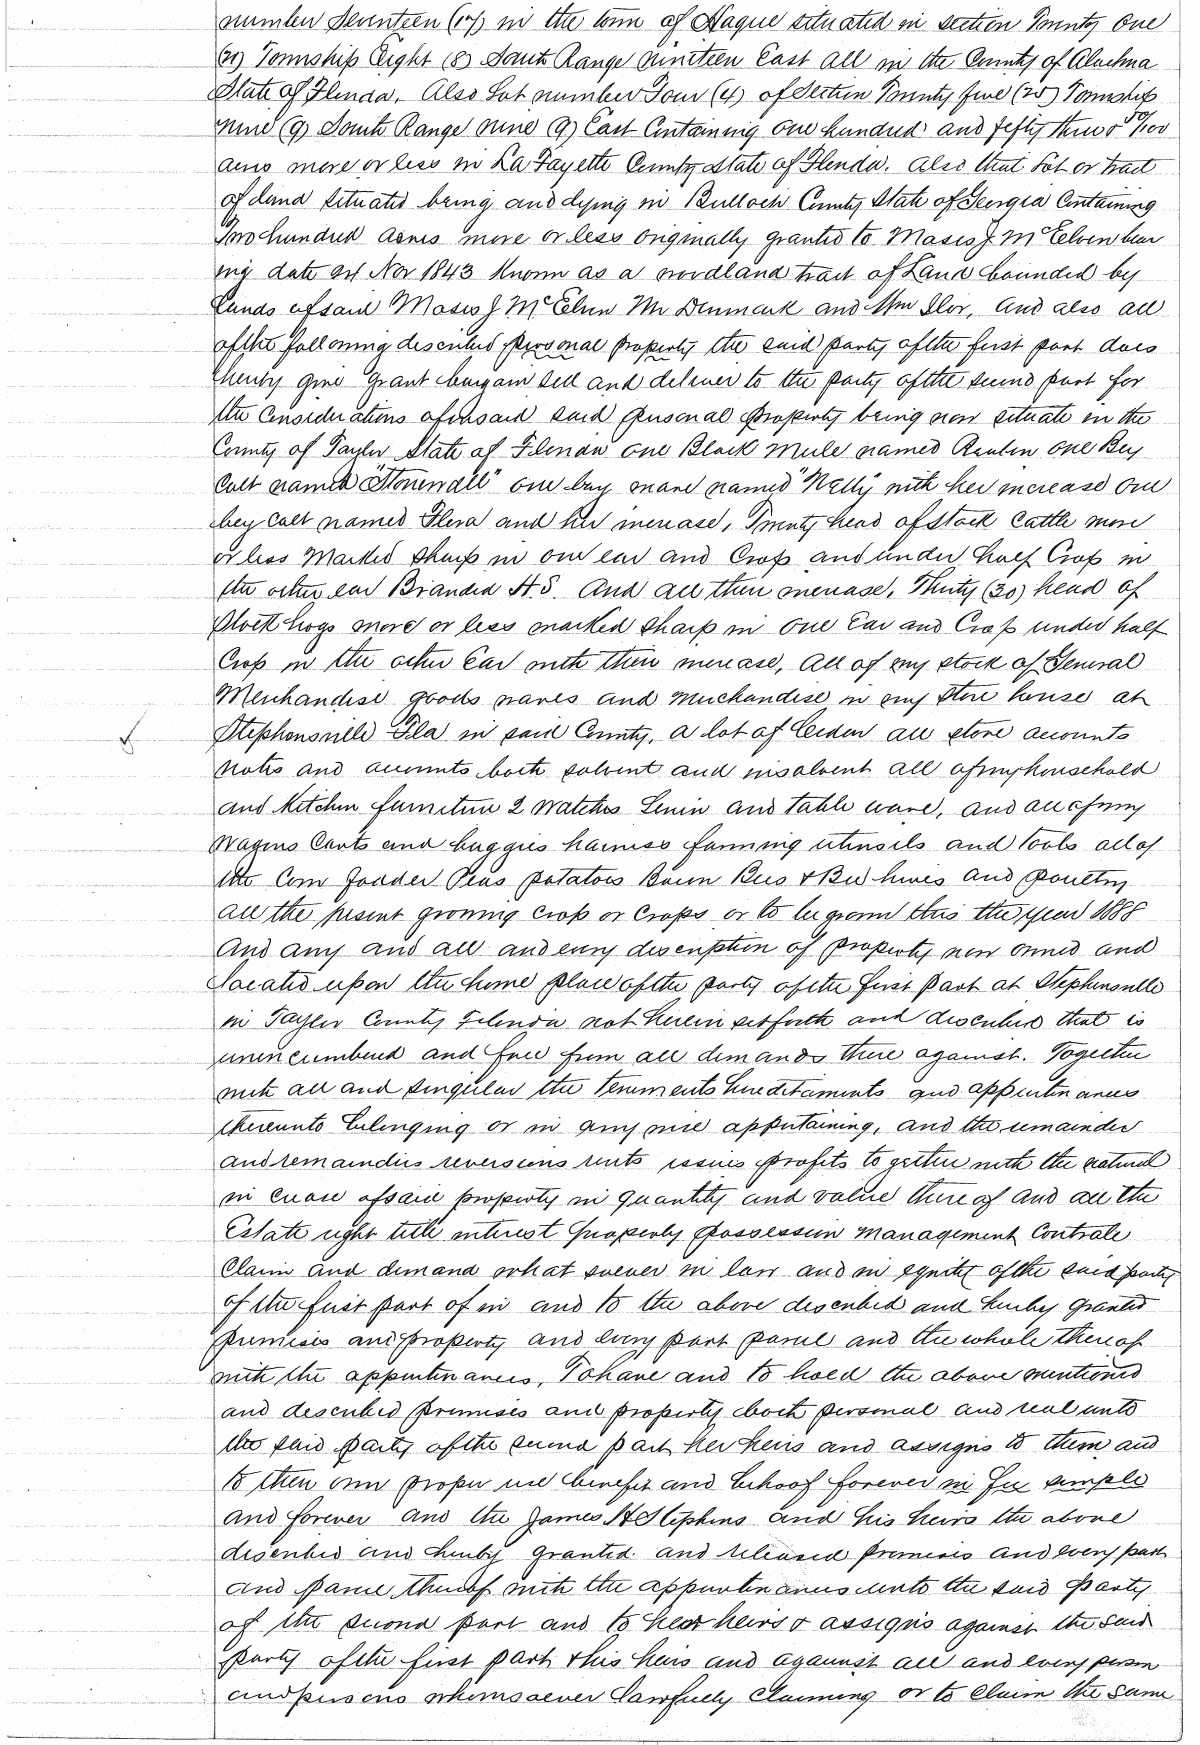 number Seventeen (17) in the town of Hague situated in section Twenty One
(21) Township Eight (8) South Range nineteen East all in the County of Alachua
State of Florida. Also Lot number Four (4) of Section Twenty five (25) Township
nine (9) South Range nine (9) East Containing one hundred and fifty three &
acres more or less in La Fayette County State of Florida. Also that Lot or tract
of land situated being and lying in Bulloch County State of Georgia Containing
Two hundred acres more or less originally granted to Moses J. McElven bear
ing date 24 Nov 1843 Known as a woodland tract of Land bounded by
Lands of said Moses J McElven Mr Denmark and Wm Ilor, and also all
of the following described personal property the said party of the first part does
hereby give grant bargain sell and deliver to the party of the second part for
the Considerations aforesaid said personal property being now situate in the
County of Taylor State of Florida one Black mule named Reuben one Bey
Colt named "Stonewall" one bay mare named "Nelly" with her increase One
bey Colt named Flora and her increase, Twenty head of stock Cattle more
or less Marked sharp in one ear and Crop and under half Crop in
the other ear Branded H.S. And all their increase, Thirty (30) head of
Stock hogs more or less marked sharp in one Ear and Crop under half
Crop in the other Ear with their increase, All of my stock of General
Merchandise goods wares and merchandise in my store house at
Stephensville Fla in said County, a lot of Ceder all store accounts
notes and accounts both solvent and insolvent all of my household
and Kitchen furniture 2 Watches Linin and table ware, and all of my
Wagons Carts and buggies harness farming utensils and tools all of
the Corn fodder Peas potatoes Bacon Bees & Bee hives and poultry
all the present growing crop or crops or to be grown this the year 1888
And any and all and every description of property now owned and
located upon the home place of the party of the first part at Stephensville
in Taylor County Florida not herein set forth and described that is
unincumbered and free from all demands there against. Together
with all and singular the tenements hereditaments and appurtenances
thereunto belonging or in any wise appertaining, and the remainder
and remainders reversions rents issues profits together with the natural
in crease of said property in quantity and value there of and all the
Estate right title interest property possession management Controle
Claim and demand what soever in law and in equity of the said party
of the first part of in and to the above described and hereby granted
premises and property and every part parcel and the whole thereof
with the appurtenances, To have and to hold the above mentioned
and described premises and property both personal and real unto
the said party of the second part her heirs and assigns to them and
to their own proper use benefit and behoof forever in fee simple
and forever and the James H Stephens and his heirs the above
described and hereby granted and released premises and every part
and parcel thereof with the appurtenances unto the said party
of the second part and to her heirs & assigns against the said
party of the first part & his heirs and against all and every person
and persons whomsoever lawfully claiming or to claim the same